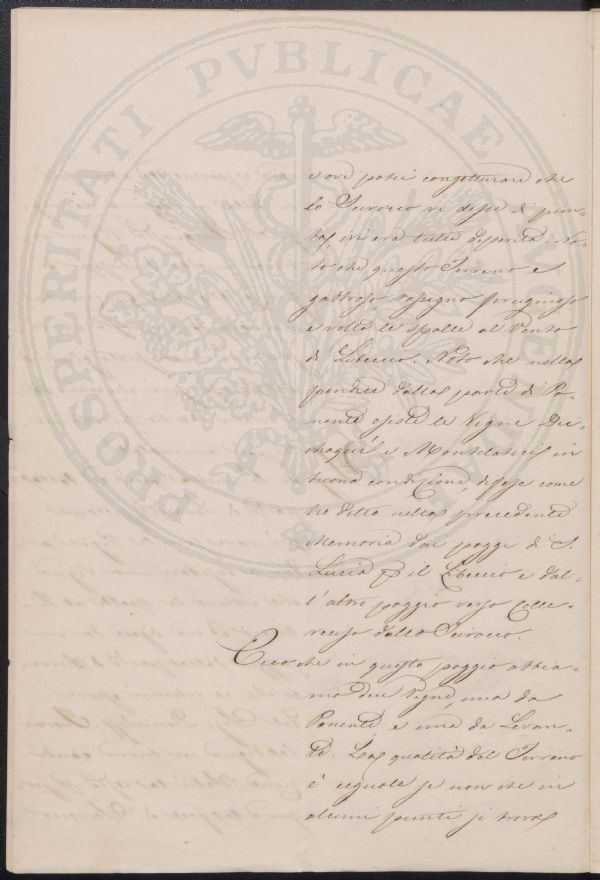 PROSPERITATI PVBLICAE AVGENDAE
e ove potei congetturare che
lo Scirocco vi desse di pun-
ta, ivi era tutta disperita. No-
to che questo Terreno è
gattroso rossigno ferruginoso
e volta le spalle al Vento
di Libeccio. Noto che nella
pendice dalla parte di Po-
nente esiste le Vigne Du-
choqué e Montelatici in
buona condizione, difese come
ho detto nella precedente
Memoria dai poggi di S.
Lucia il Libeccio e dal-
l'altro poggio verso Colle-
reciso dallo Scirocco.
Ecco che in questo poggio abbia-
mo due Vigne, una da
Ponente e una da Levan-
te. La qualità del Terreno
è eguale se non che in
alcuni punti si trova